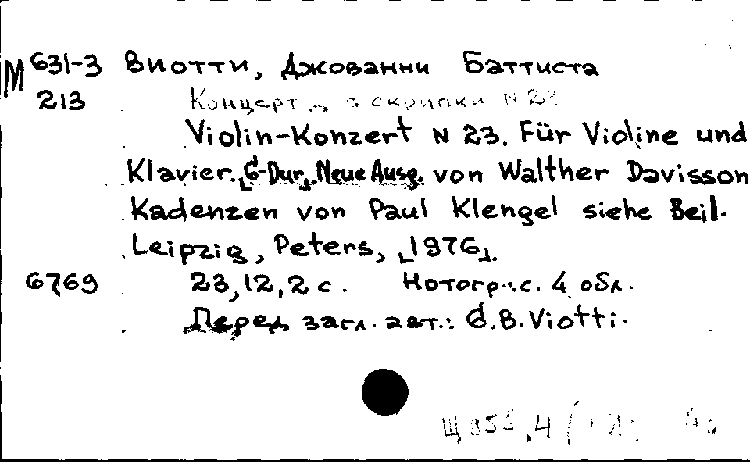 М 631-3 Виотти, Джованни Баттиста
213 Концерт скрипки N 23
Violin-Konzert N 23. Für Violine und
Klavier. G-Dur. Neue Ausg. von Walther Davisson
Kadenzen von Paul Klengel siehe Beil.
Leipzig, Peters, [1976].
6769 23,12,2 с. Нотогр.: с. 4 обл.
Перед загл. авт.: G.B. Viotti.